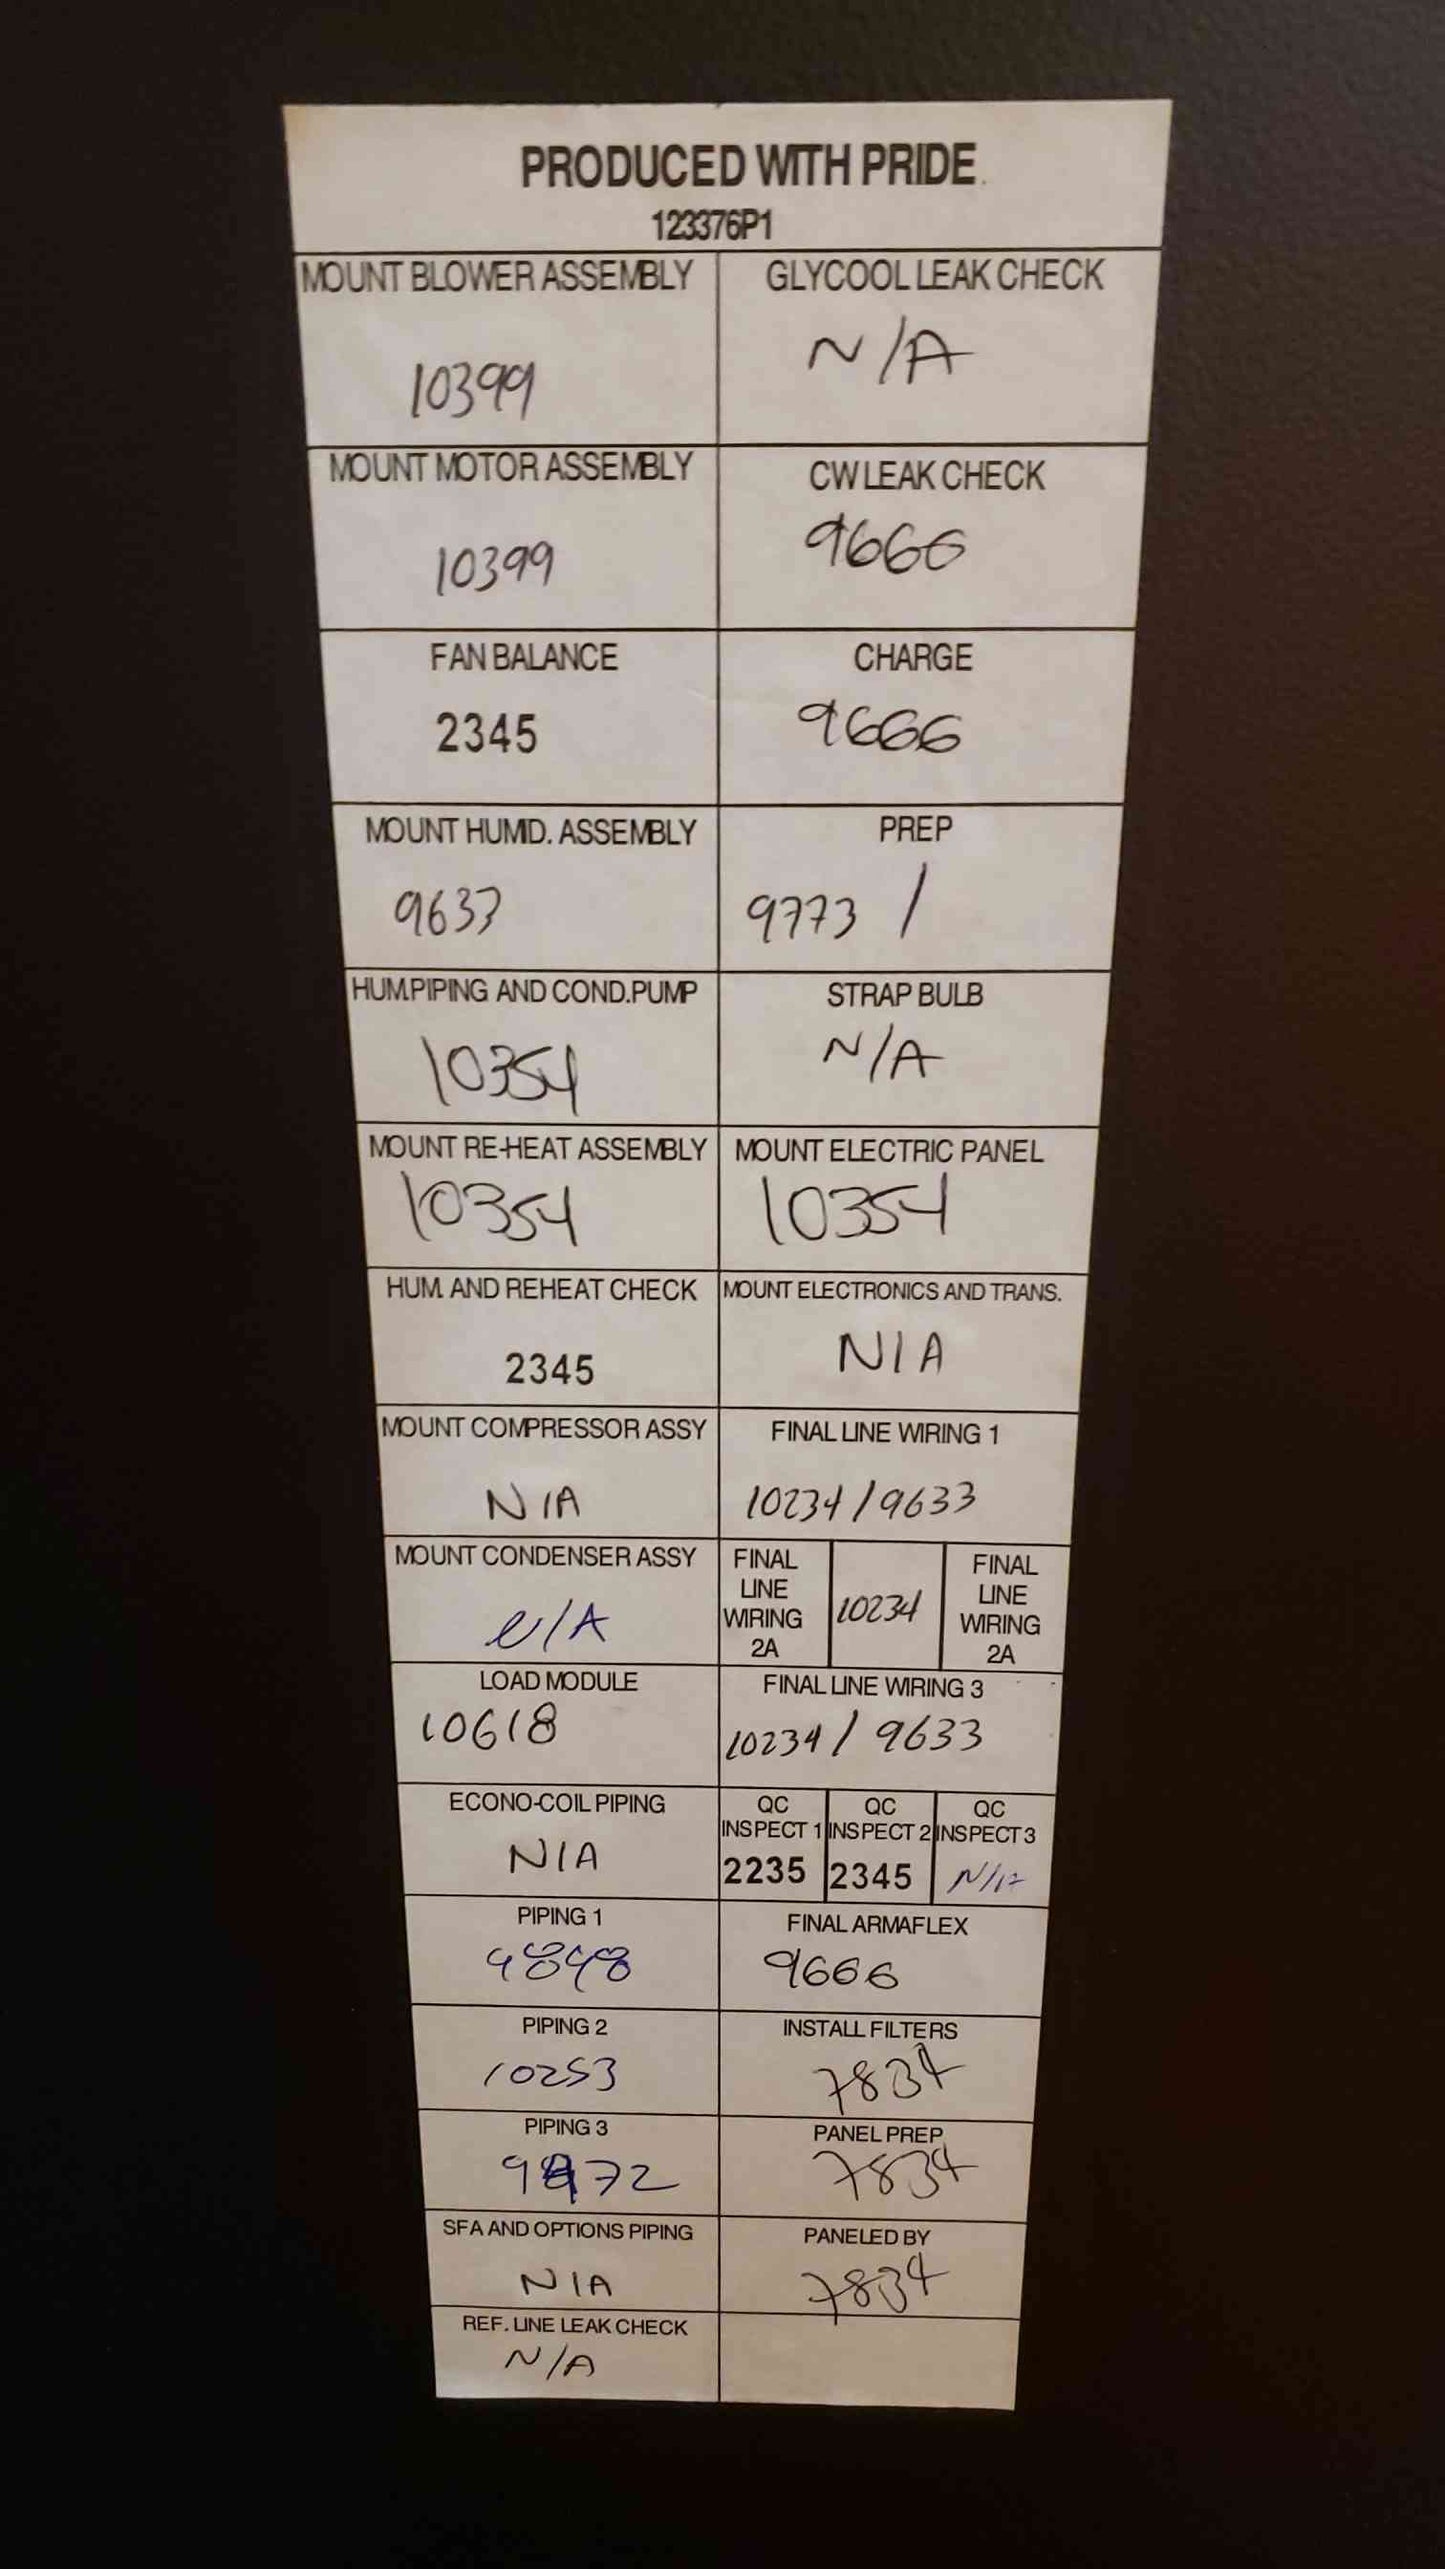 PRODUCED WITH PRIDE
123376P1
MOUNT BLOWER ASSEMBLY
10399
GLYCOOL LEAK CHECK
N/A
MOUNT MOTOR ASSEMBLY
10399
CW LEAK CHECK
9666
FAN BALANCE
2345
CHARGE
9666
MOUNT HUMID. ASSEMBLY
9633
PREP
9773 /
HUM.PIPING AND COND.PUMP
10354
STRAP BULB
N/A
MOUNT RE-HEAT ASSEMBLY
10354
MOUNT ELECTRIC PANEL
10354
HUM. AND REHEAT CHECK
2345
MOUNT ELECTRONICS AND TRANS.
N/A
MOUNT COMPRESSOR ASSY
N/A
FINAL LINE WIRING 1
10234 / 9633
MOUNT CONDENSER ASSY
N/A
FINAL
LINE
WIRING
2A
10234
FINAL
LINE
WIRING
2A
LOAD MODULE
10618
FINAL LINE WIRING 3
10234 / 9633
ECONO-COIL PIPING
N/A
QC
INSPECT 1
2235
QC
INSPECT 2
2345
QC
INSPECT 3
N/A
PIPING 1
9898
FINAL ARMAFLEX
9666
PIPING 2
10253
INSTALL FILTERS
7834
PIPING 3
PANEL PREP
7834
SFA AND OPTIONS PIPING
N/A
PANELED BY
7834
REF. LINE LEAK CHECK
N/A